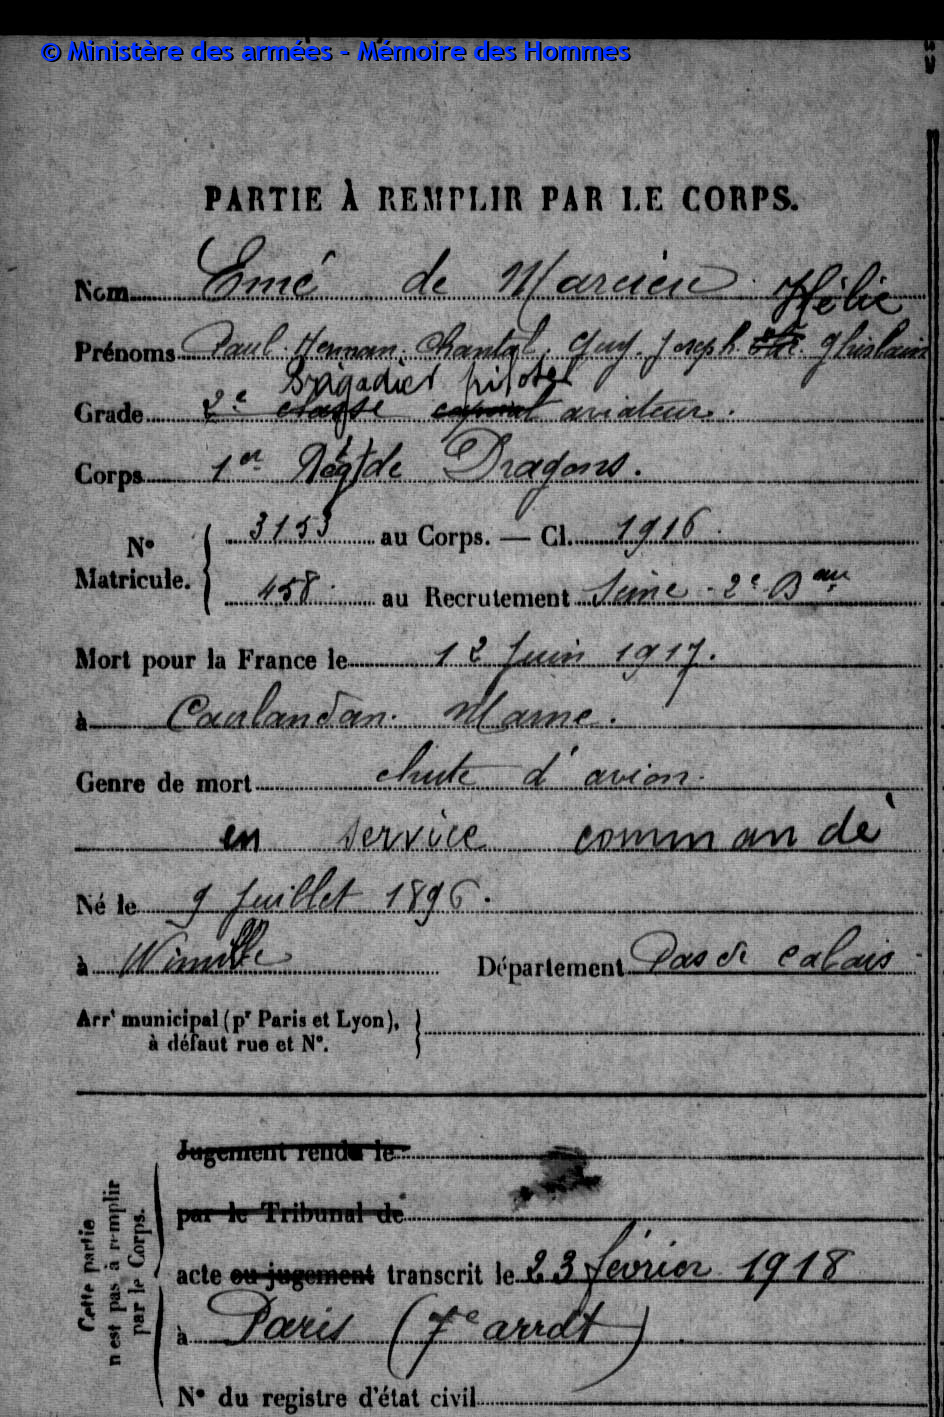 © Ministère des armées - Mémoire des Hommes
PARTIE À REMPLIR PAR LE CORPS.
Nom Emé de Marcieu
Hélie
Prénoms Paul. Hennan. Chantal, Guy. Joseph. Ghislain
Brigadier pilote
Grade 2e classe caporal aviateur.
Corps 1er Régt de Dragons.
No Matricule. 3153 au Corps. — Cl. 1916.
458. au Recrutement Seine - 2e Bau
Mort pour la France le 12 Juin 1917.
à Courlandan. Marne.
Genre de mort chute d'avion.
en service commandé
Né le 9 Juillet 1896.
à Wimille Département Pas de Calais
Arrt municipal (pr Paris et Lyon),
à défaut rue et No.
Cette partie
n'est pas à remplir
par le Corps.
Jugement rendu le
par le Tribunal de
acte ou jugement transcrit le 23 février 1918
à Paris (7e arrdt)
No du registre d'état civil